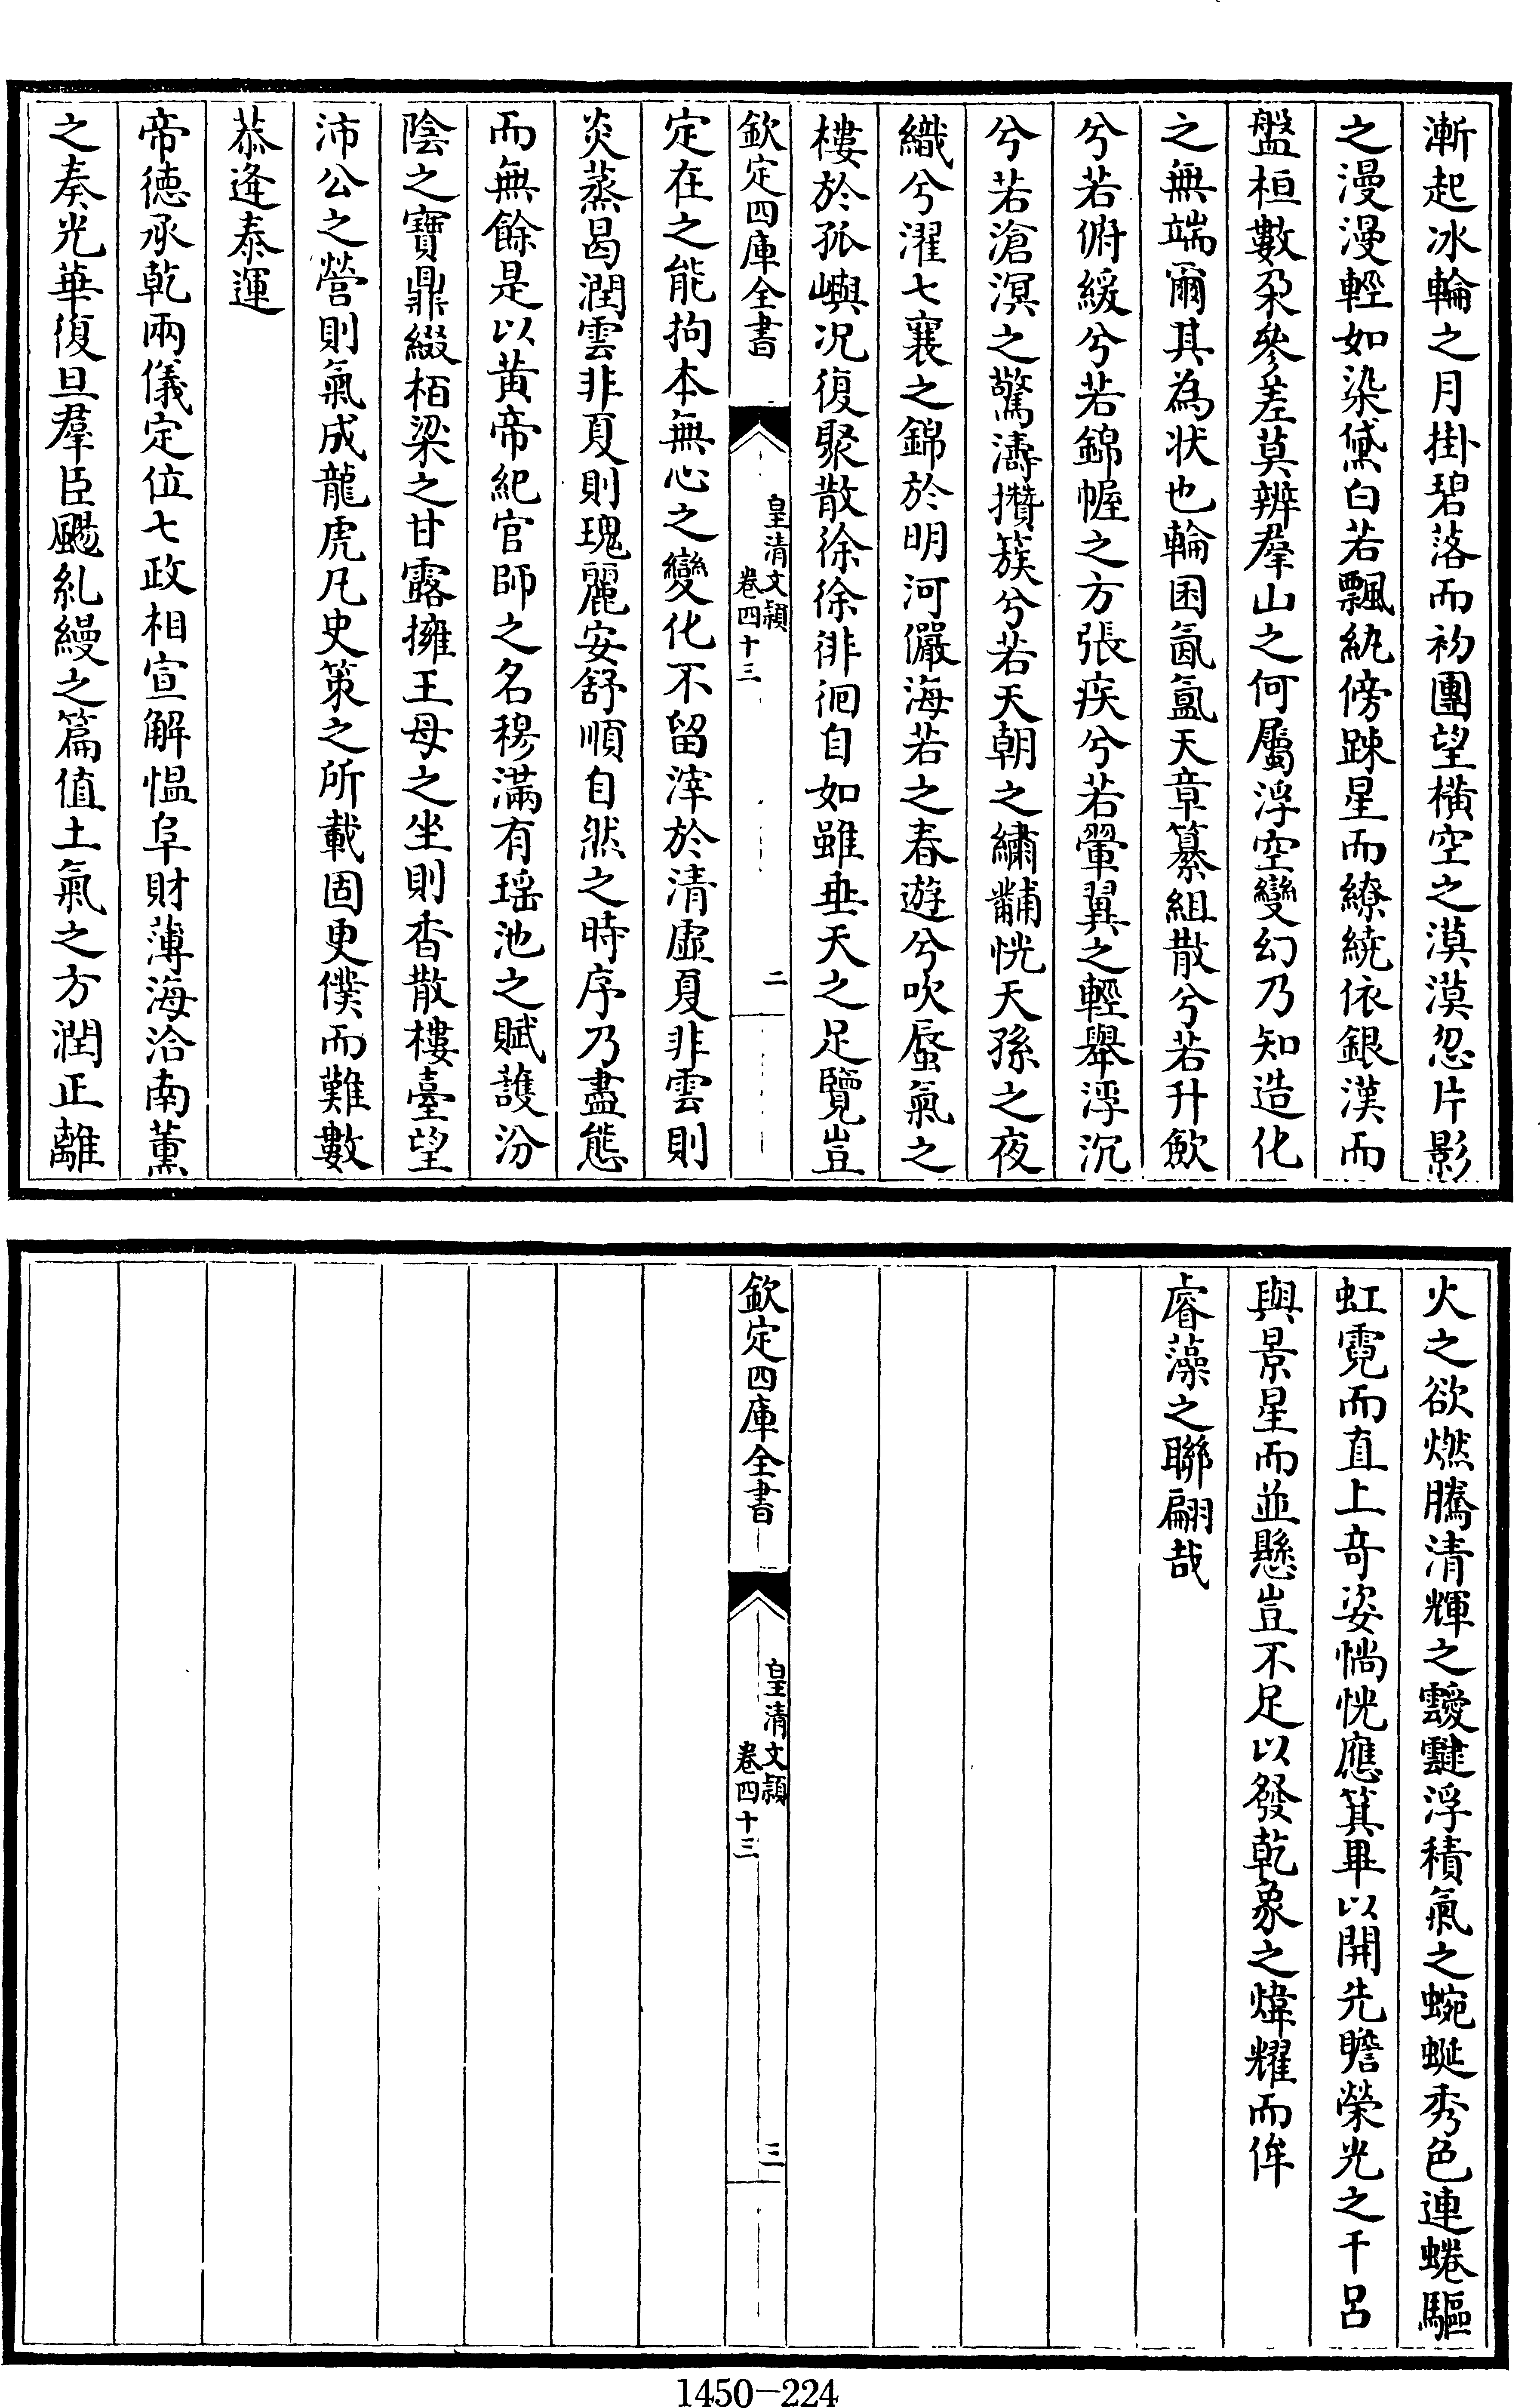 漸起冰輪之月掛碧落而初團望橫空之漠漠忽片影
之漫漫輕如染黛白若飄紈傍踈星而繚繞依銀漢而
盤桓數朶參差莫辨羣山之何屬浮空變幻乃知造化
之無端爾其為状也輪囷氤氲天章纂組散兮若升歛
兮若俯緩兮若錦幄之方張疾兮若翬翼之輕舉浮沉
兮若滄溟之驚濤攢簇兮若天朝之繡黼恍天孫之夜
織兮濯七襄之錦於明河儼海若之春遊兮吹蜃氣之
樓於孤嶼况復聚散徐徐徘徊自如雖垂天之足覽豈
欽定四庫全書
皇清文頴
卷四十三
二
定在之能拘本無心之變化不留滓於清虛夏非雲則
炎蒸曷潤雲非夏則瑰麗安舒順自然之時序乃盡態
而無餘是以黃帝紀官師之名穆滿有瑶池之賦頀汾
陰之寶鼎綴栢梁之甘露擁王母之坐則香散樓臺望
沛公之營則氣成龍虎凡史策之所載固更僕而難數
恭逢泰運
帝德承乾兩儀定位七政相宣解慍阜財薄海洽南薰
之奏光華復旦羣臣颺糺縵之篇值土氣之方潤正離
火之欲燃騰清輝之靉靆浮積氣之蜿蜒秀色連蜷驅
虹霓而直上奇姿惝恍應箕畢以開先瞻榮光之千呂
與景星而並懸豈不足以發乾象之煒耀而侔
睿藻之聯翩哉
欽定四庫全書
皇清文頴
卷四十三
三
1450-224